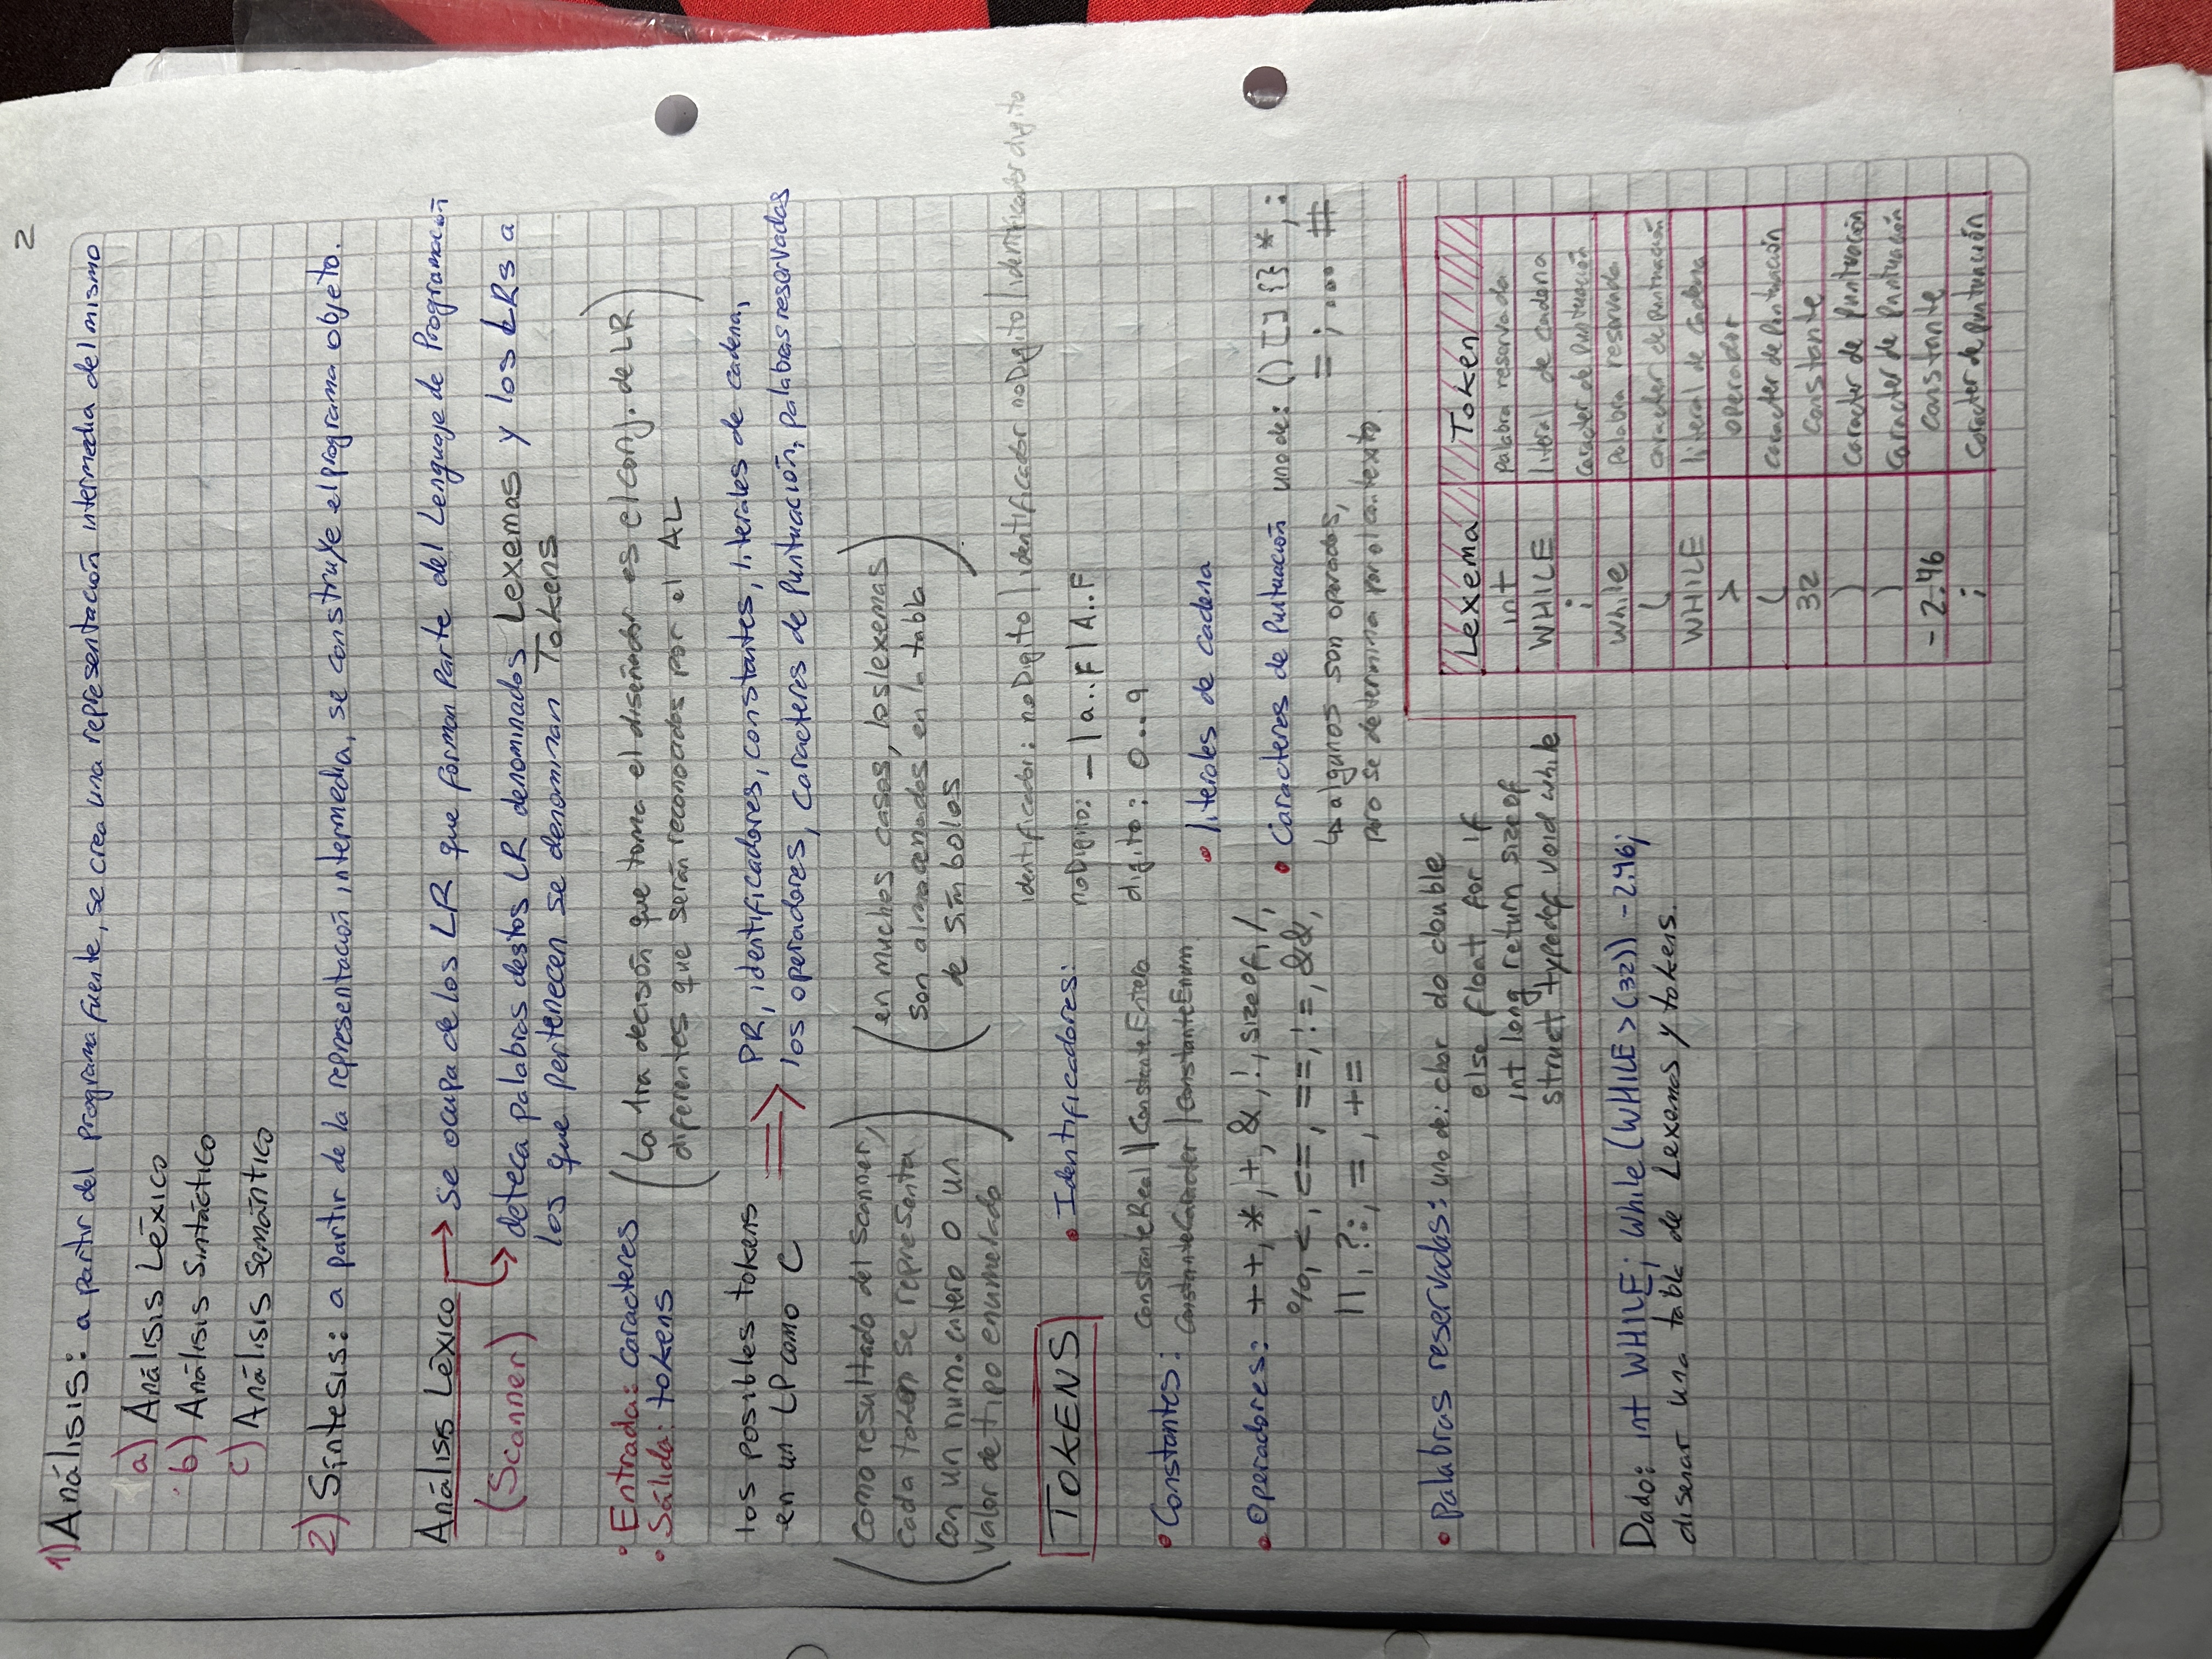 2
1) Análisis: a partir del programa fuente, se crea una representación intermedia del mismo
a) Análisis Léxico
b) Análisis Sintáctico
c) Análisis Semántico
2) Síntesis: a partir de la representación intermedia, se construye el programa objeto.
Análisis Léxico → se ocupa de los LR que forman parte del Lenguaje de Programación
(Scanner) ↳ deteca palabras destos LR denominados Lexemas y los LRs a
los que pertenecen se denominan Tokens
• Entrada: caracteres
• Sálida: tokens
(La 1ra decisión que toma el diseñador es el conj. de LR
diferentes que serán reconocidos por el AL)
los posibles tokens
en un LP como C
⇒ PR, identificadores, constantes, literales de cadena,
los operadores, caracteres de Puntuación, palabras reservadas
(como resultado del Scanner,
cada token se representa
con un num. entero o un
valor de tipo enumerado)
(en muchos casos, los lexemas
son almacenados en la tabla
de símbolos)
TOKENS
• Identificadores:
identificador: noDigito | identificador noDigito | identificador digito
noDigito: _ | a..F | A..F
digito: 0..9
• Constantes: constanteReal || ConstanteEntera
ConstanteCaracter | ConstanteEnum
• literales de cadena
• Operadores: ++, *, +, &, !, sizeof, /,
%, <, <=, ==, !=, &&,
||, ?:, =, +=
• Caracteres de Puntuación uno de: () [] {} *, :
= ; ... #
↳ algunos son operados,
pero se determina por el contexto.
• palabras reservadas: uno de: char do double
else float for if
int long return sizeof
struct typedef void while
Dado: int WHILE; while (WHILE > (32)) -2.46;
diseñar una tabla de Lexemas y tokens.
Lexema Token
int palabra reservada
WHILE literal de cadena
; caracter de puntuación
while palabra reservada
( caracter de puntuación
WHILE literal de cadena
> operador
( caracter de Puntuación
32 constante
) caracter de Puntuación
) caracter de Puntuación
-2.46 constante
; caracter de puntuación